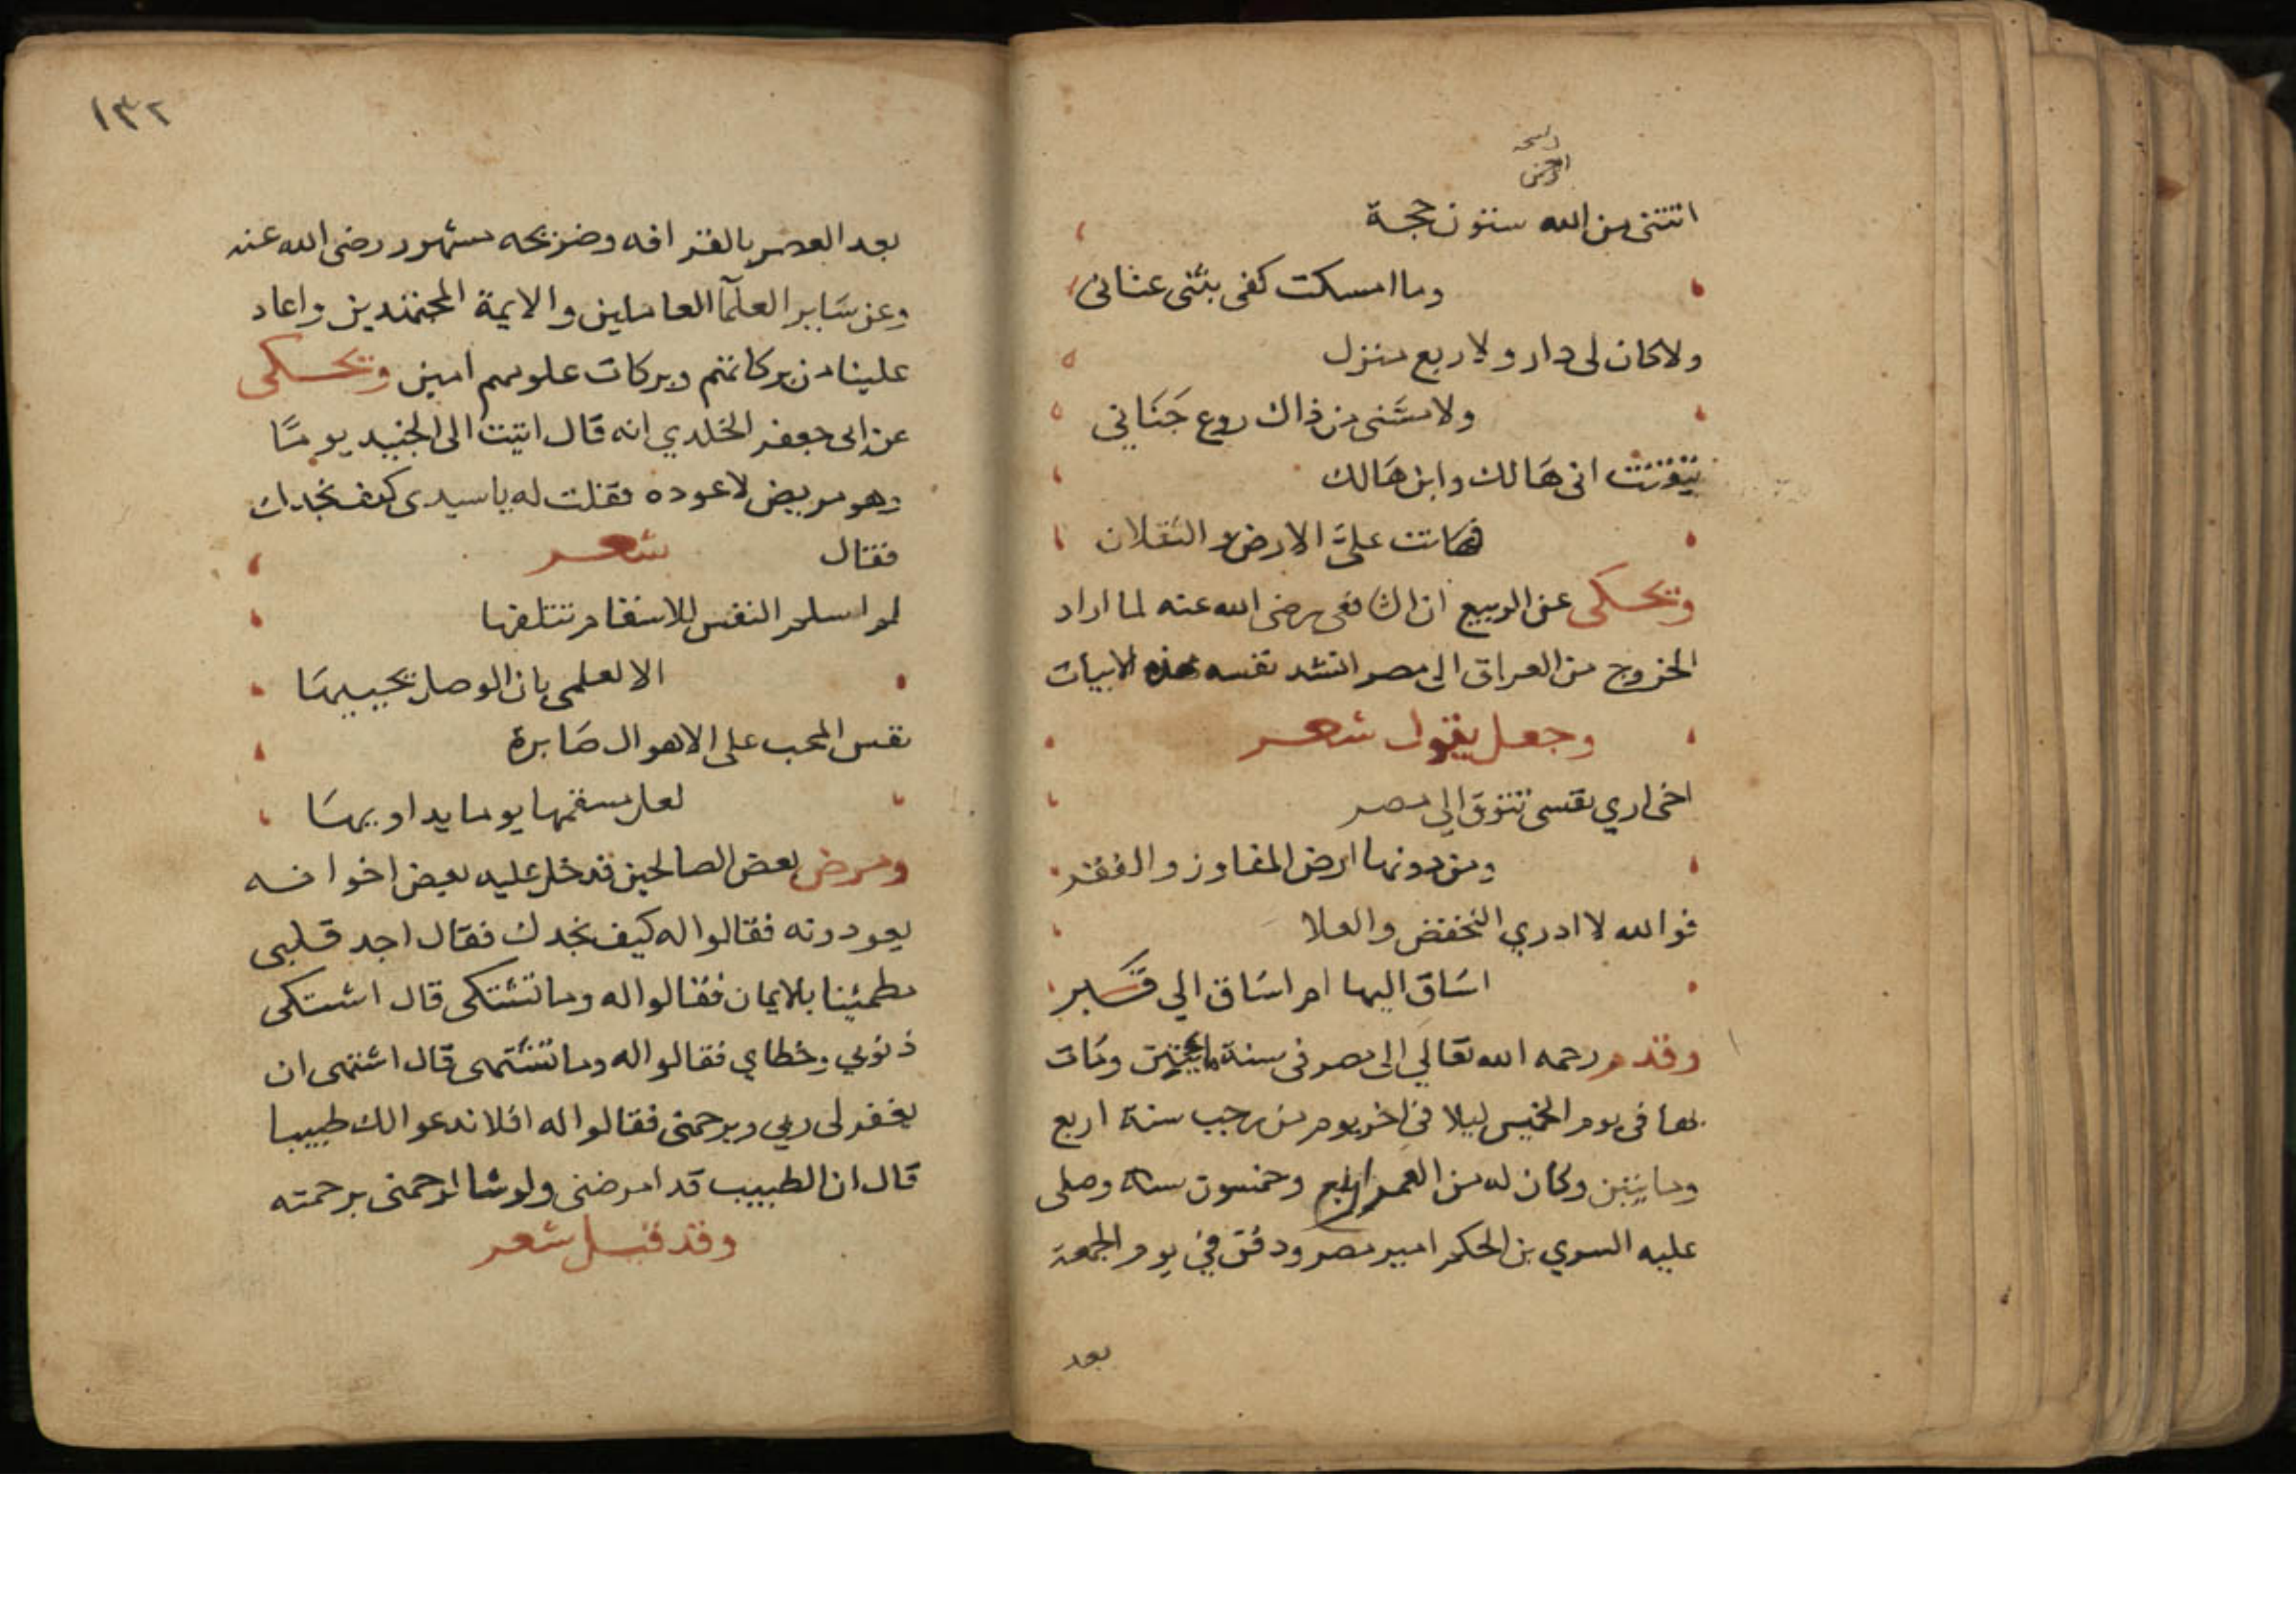 اتتنى من الله ستون حجة
وما امسكت كفى بثنى عنانى
ولا كان لى دار ولا ربع منزل
ولا مسَّنى من ذاك روع جَنَاني
تيقنت انى هَالك وابن هَالك
فهانت علىَّ الارض والثقلان
ويحكى عن الربيع ان الشافعى رضى الله عنه لما اراد
الخروج من العراق الى مصر انشد نفسه هذه الابيات
وجعل يقول شعر
اخى اري نفسى تتوق الي مصر
ومن دونها ارض المفاوز والقفر
فوالله لا ادري اللخفض والعلا
اسَاق اليها ام اسَاق الي قَبر
وقدم رحمه الله تعالي الى مصر فى سنة ومَات
بها فى يوم الخميس ليلا في اخر يوم من رجب سنة اربع
ومايتين وكان له من العمر اربع وخمسون سنة وصلى
عليه السري بن الحكم امير مصر ودفن في يوم الجمعة
بعد
١٣٢
بعد العصر بالقرافه وضريحه مشهور رضى الله عنه
وعن سَاير العلمآ العاملين والايمة المجتهدين واعاد
علينا من بركاتهم وبركات علومهم امين ويحكى
عن ابى جعفر الخلدي انه قال اتيت الى الجنيد يومًا
وهو مريض لاعوده فقلت له يا سيدى كيف نجدك
فقال شعر
لم اسلم النفس للاسقام تتلفها
الا لعلمى بان الوصل يحييهَا
نفس المحب على الاهوال صَابرة
لعل مسقمها يوما يداويهَا
ومرض بعض الصالحين فدخل عليه بعض اخوانه
يعودونه فقالوا له كيف نجدك فقال اجد قلبى
مطمئنا بالايمان فقالوا له وما تشتكى قال اشتكى
ذنوبي وخطاي فقالوا له وما تشتهى قال اشتهى ان
يغفر لى ربي ويرحمنى فقالوا له افلا ندعوا لك طبيبا
قال ان الطبيب قد امرضنى ولو شا لرحمنى برحمته
وقد قيل شعر